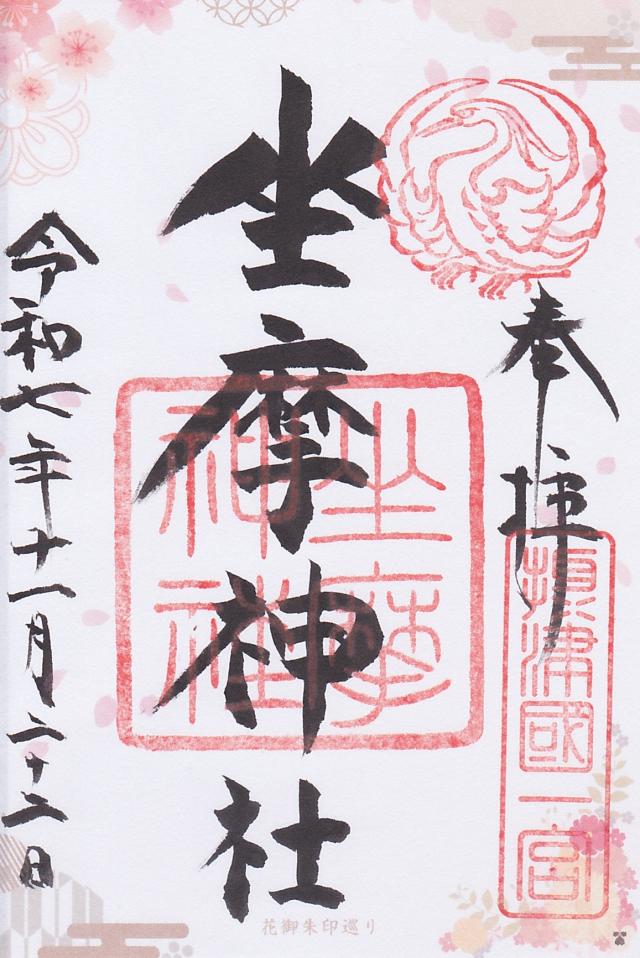 奉拝
摂津國一宮
坐摩神社
坐摩神社
令和七年十一月二十二日
花御朱印巡り